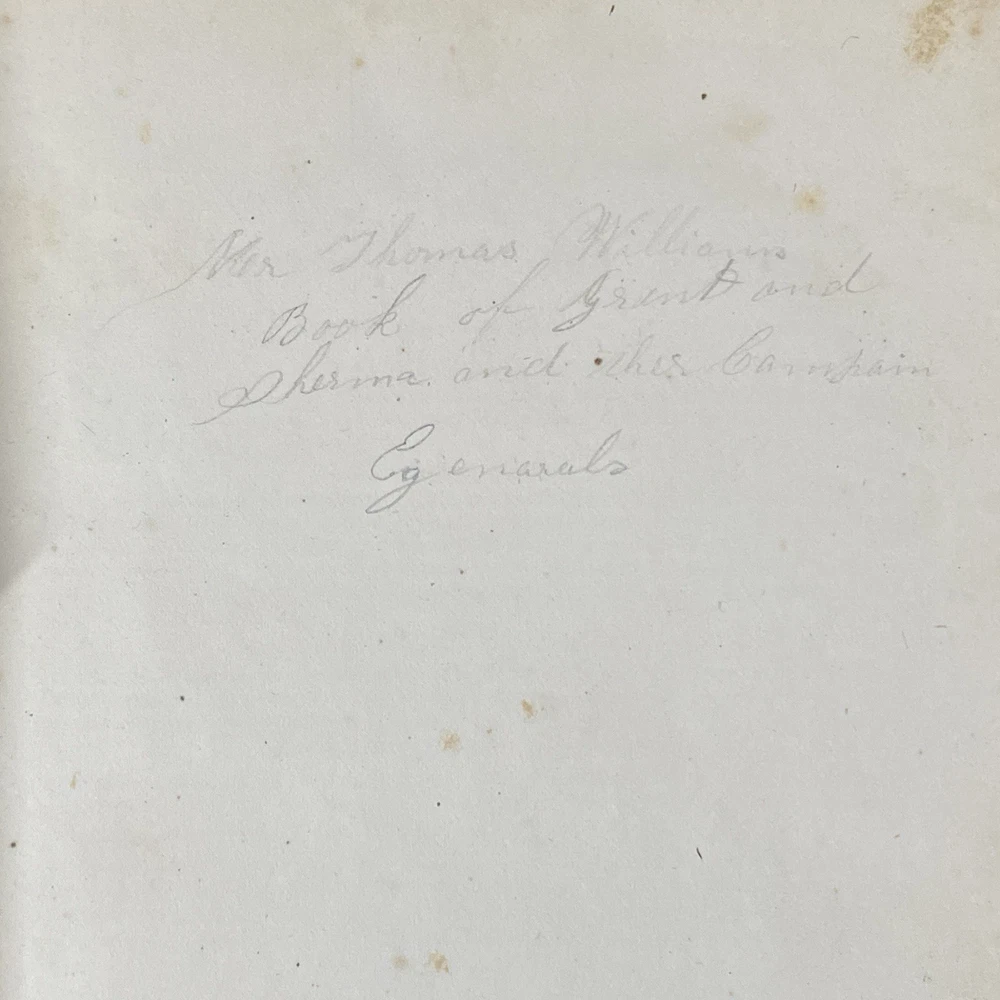 Mer Thomas Williams
Book of Grent and
Sherma and ther Campain
Egenarals